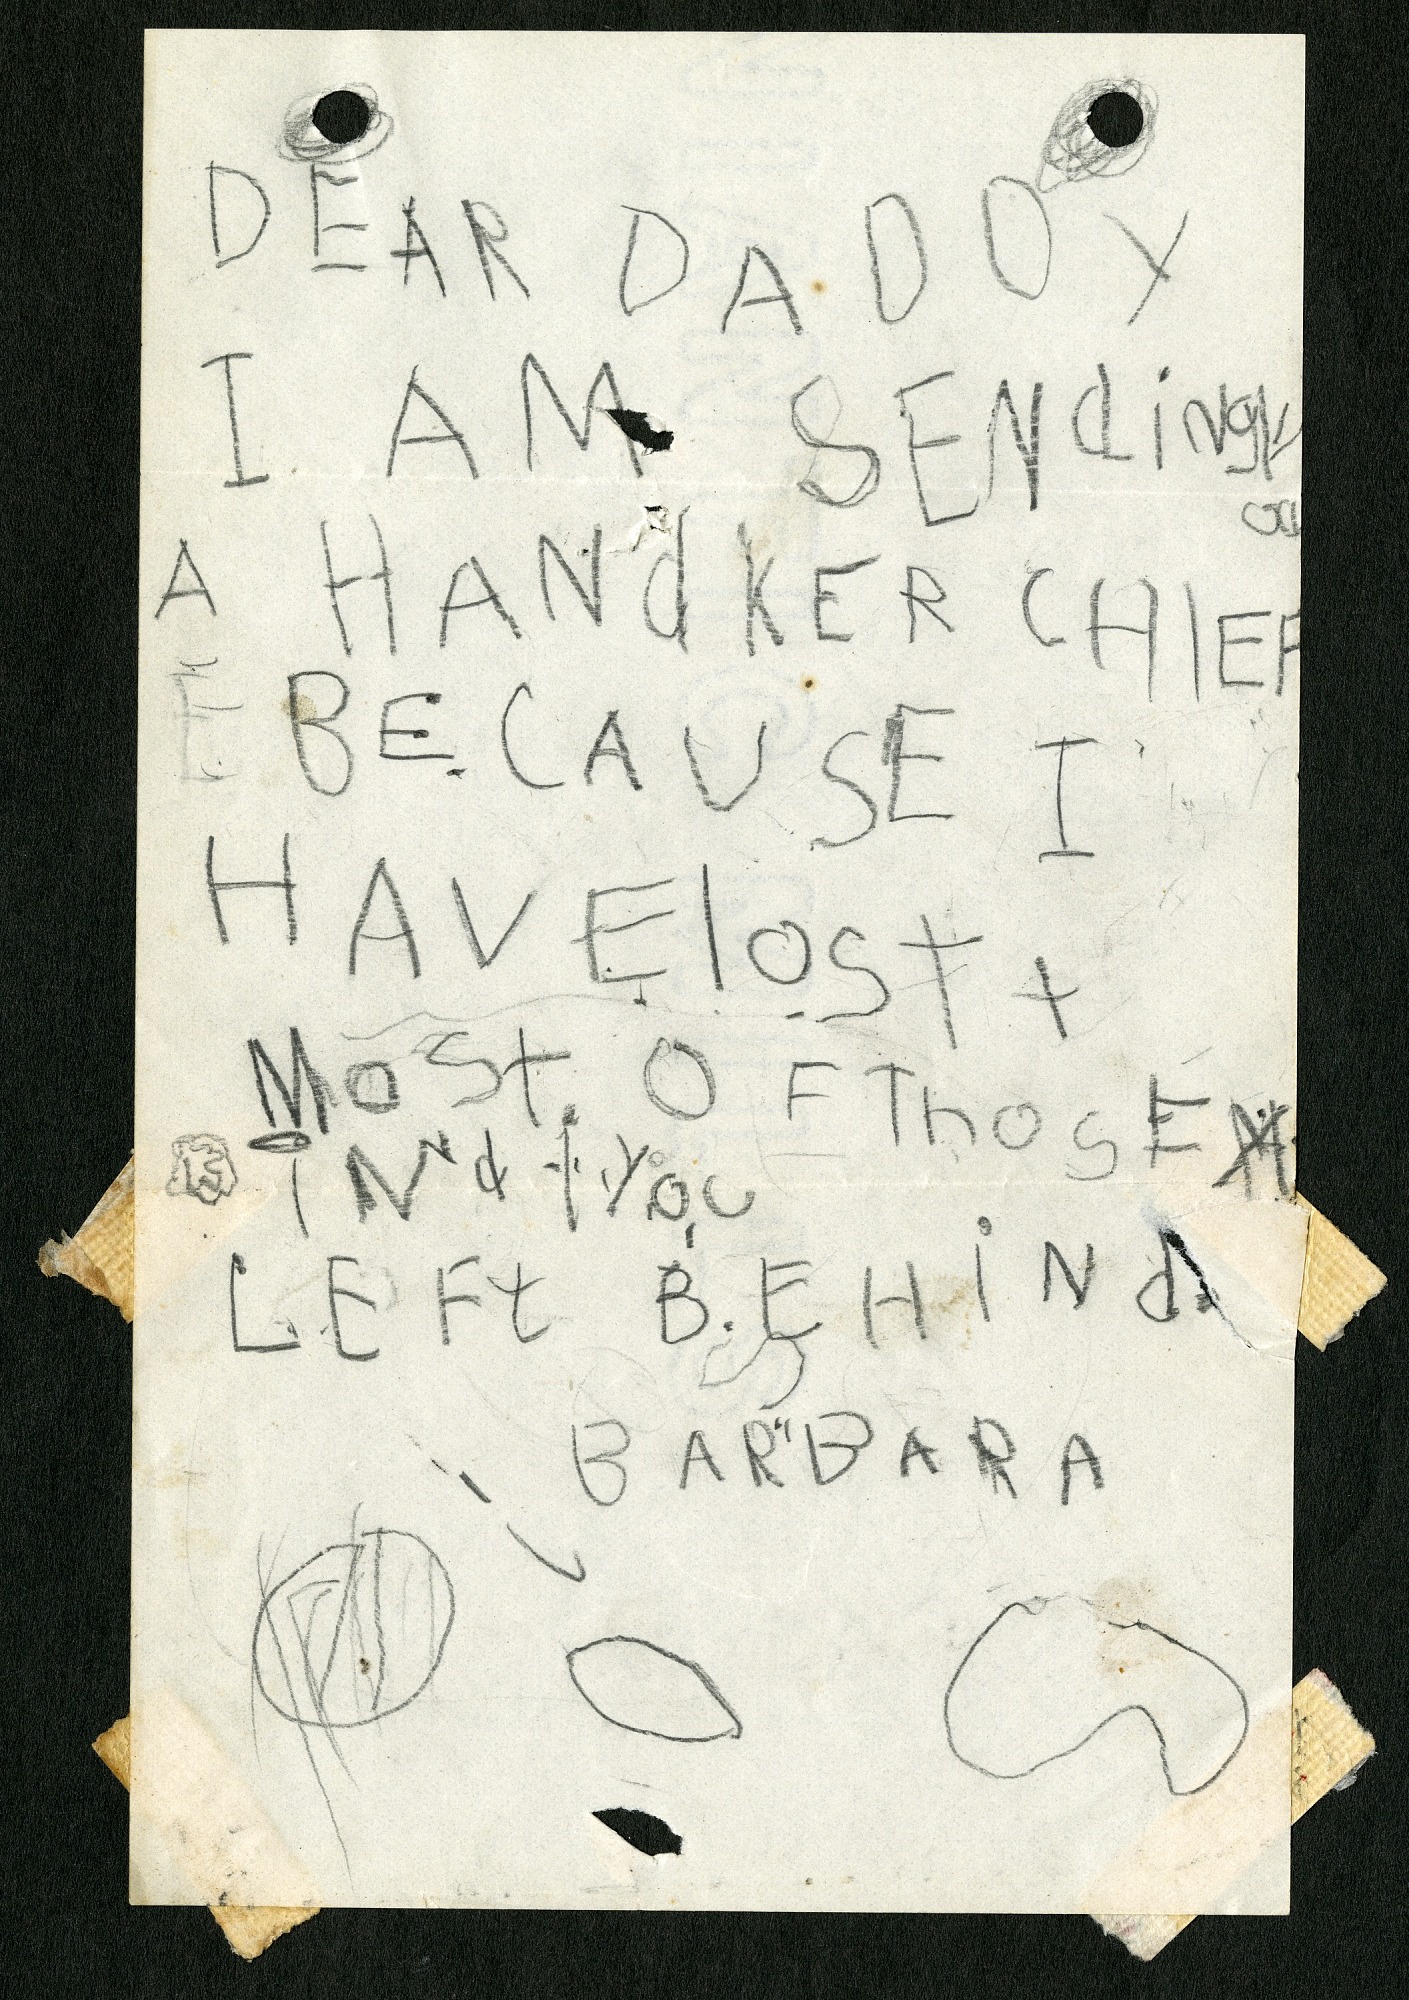 DEAR DADDY
I AM SENdiNg y
ou
A HANdkERCHIEF
BECAUSE I
HAVE lOSt
MoSt OF ThoSE
iNd you
LEFt BEHiNd
BARBARA